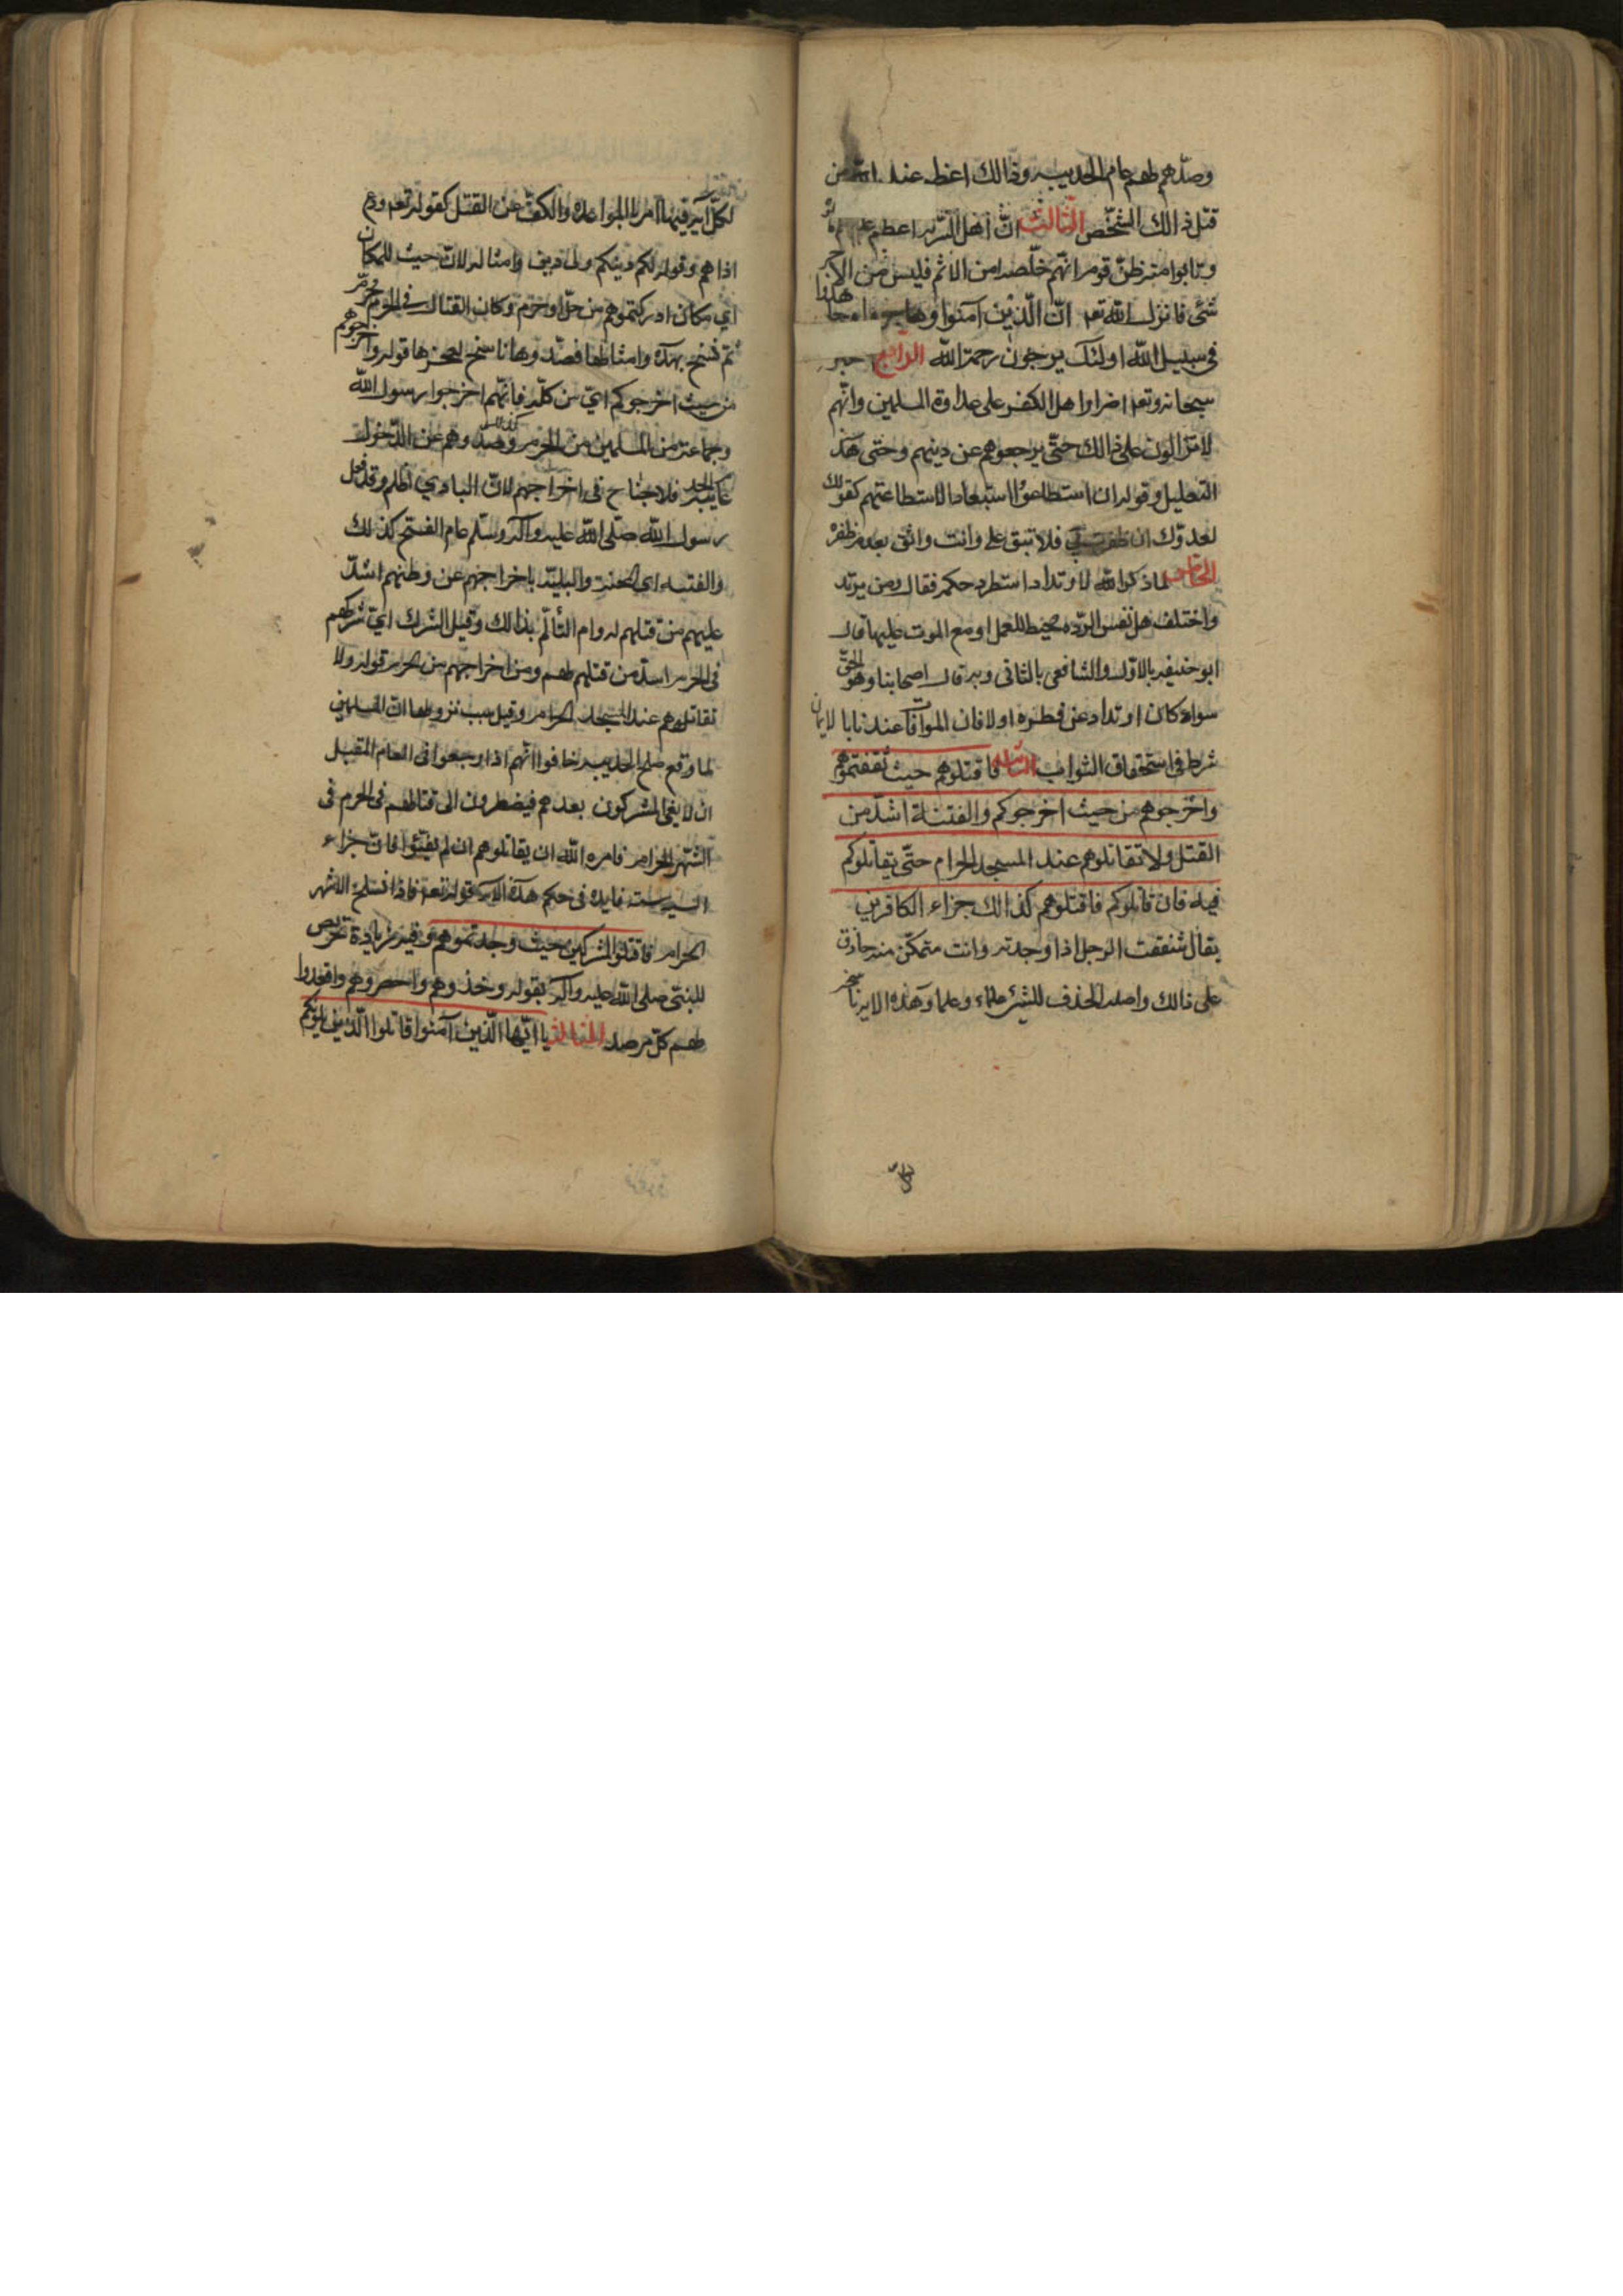 وصدّهم لهم عام الحديبيه وذالك اعظم عند الله من
قتل ذالك الشخص الثالث انّ أهل السّريه اعظم
وتابوا منه ظنّ قوم انّهم خلّصوا من الاثم فليس لهم من الاجر
شئ فانزل الله تعه انّ الّذين آمنوا وهاجروا وجاهدوا
في سبيل الله اولئك يرجون رحمة الله الرابع خبر
سبحانه وتعه اصرار اهل الكفر على عداوة المسلمين وانّهم
لا تزالون على ذالك حتّى يرجعوهم عن دينهم وحتى هنا
التعليل وقوله ان استطاعوا استبعادا لاستطاعتهم كقولك
لعدوّك ان ظفرت بي فلا تبق علي وانت واثق بعدم ظفره
الخامس لما ذكر الله الارتداد استطرد حكمه فقال ومن يرتد
واختلف هل نفس الردّه محبط للعمل او مع الموت عليها قال
ابو حنيفه بالاوّل والشافعي بالثاني وبه قال اصحابنا وهو الحقّ
سواء كان ارتداد عن فطره او لا فان الموافاة عندنا بالايمان
شرط في استحقاق الثواب فاقتلوهم حيث ثقفتموهم
واخرجوهم من حيث اخرجوكم والفتنة اشدّ من
القتل ولا تقاتلوهم عند المسجد الحرام حتّى يقاتلوكم
فيه فان قاتلوكم فاقتلوهم كذالك جزاء الكافرين
يقال ثقفت الرجل اذا وجدته وانت متمكّن منه حاذق
على ذالك واصله الحذف للشئ علماء وعملا وهذه الايه ناسخه
لكلّ آية فيها امر بالمواعده والكفّ عن القتل كقوله تعه ودع
اذاهم وقوله لكم دينكم ولي دين وامثاله لانّ حيث للمكان
اي مكان ادركتموهم من حلّ او حرم وكان القتال في الحرم محرّم
ثم نسخ بهذه وامثالها فصدرها ناسخ لعجزها قوله واخرجوهم
من حيث اخرجوكم ايّ من مكّه فانّهم اخرجوا رسول الله
وجماعة من المسلمين من الحرم وصدّوهم عن الدّخول
فلا جناح في اخراجهم لانّ البادي اظلم وقد فعل
رسول الله صلّى الله عليه وآله وسلّم عام الفتح كذلك
والفتنه اي المحنه والبليّة باخراجهم عن وطنهم اشدّ
عليهم من قتلهم لدوام التألّم بذالك وقيل الشرك ايّ شركهم
في الحرم اشدّ من قتلهم لهم ومن اخراجهم من الحرم قوله ولا
تقاتلوهم عند المسجد الحرام وقيل سبب نزولها انّ المسلمين
لما وقع صلح الحديبيه خافوا انّهم اذا رجعوا في العام المقبل
ان لا يفي المشركون بعدهم فيضطرون الى قتالهم في الحرم في
الشّهر الحرام فامره الله ان يقاتلوهم ان لم يفيئوا فانّ جزاء
السيئه سيئه فايده في حكم هذه الايه قوله تعه فاذا انسلخ الاشهر
الحرام فاقتلوا المشركين حيث وجدتموهم وفيه زيادة تحريص
للنبيّ صلى الله عليه وآله بقوله وخذوهم واحصروهم واقعدوا
لهم كلّ مرصد الثالثه يا ايّها الّذين آمنوا قاتلوا الّذين يلونكم